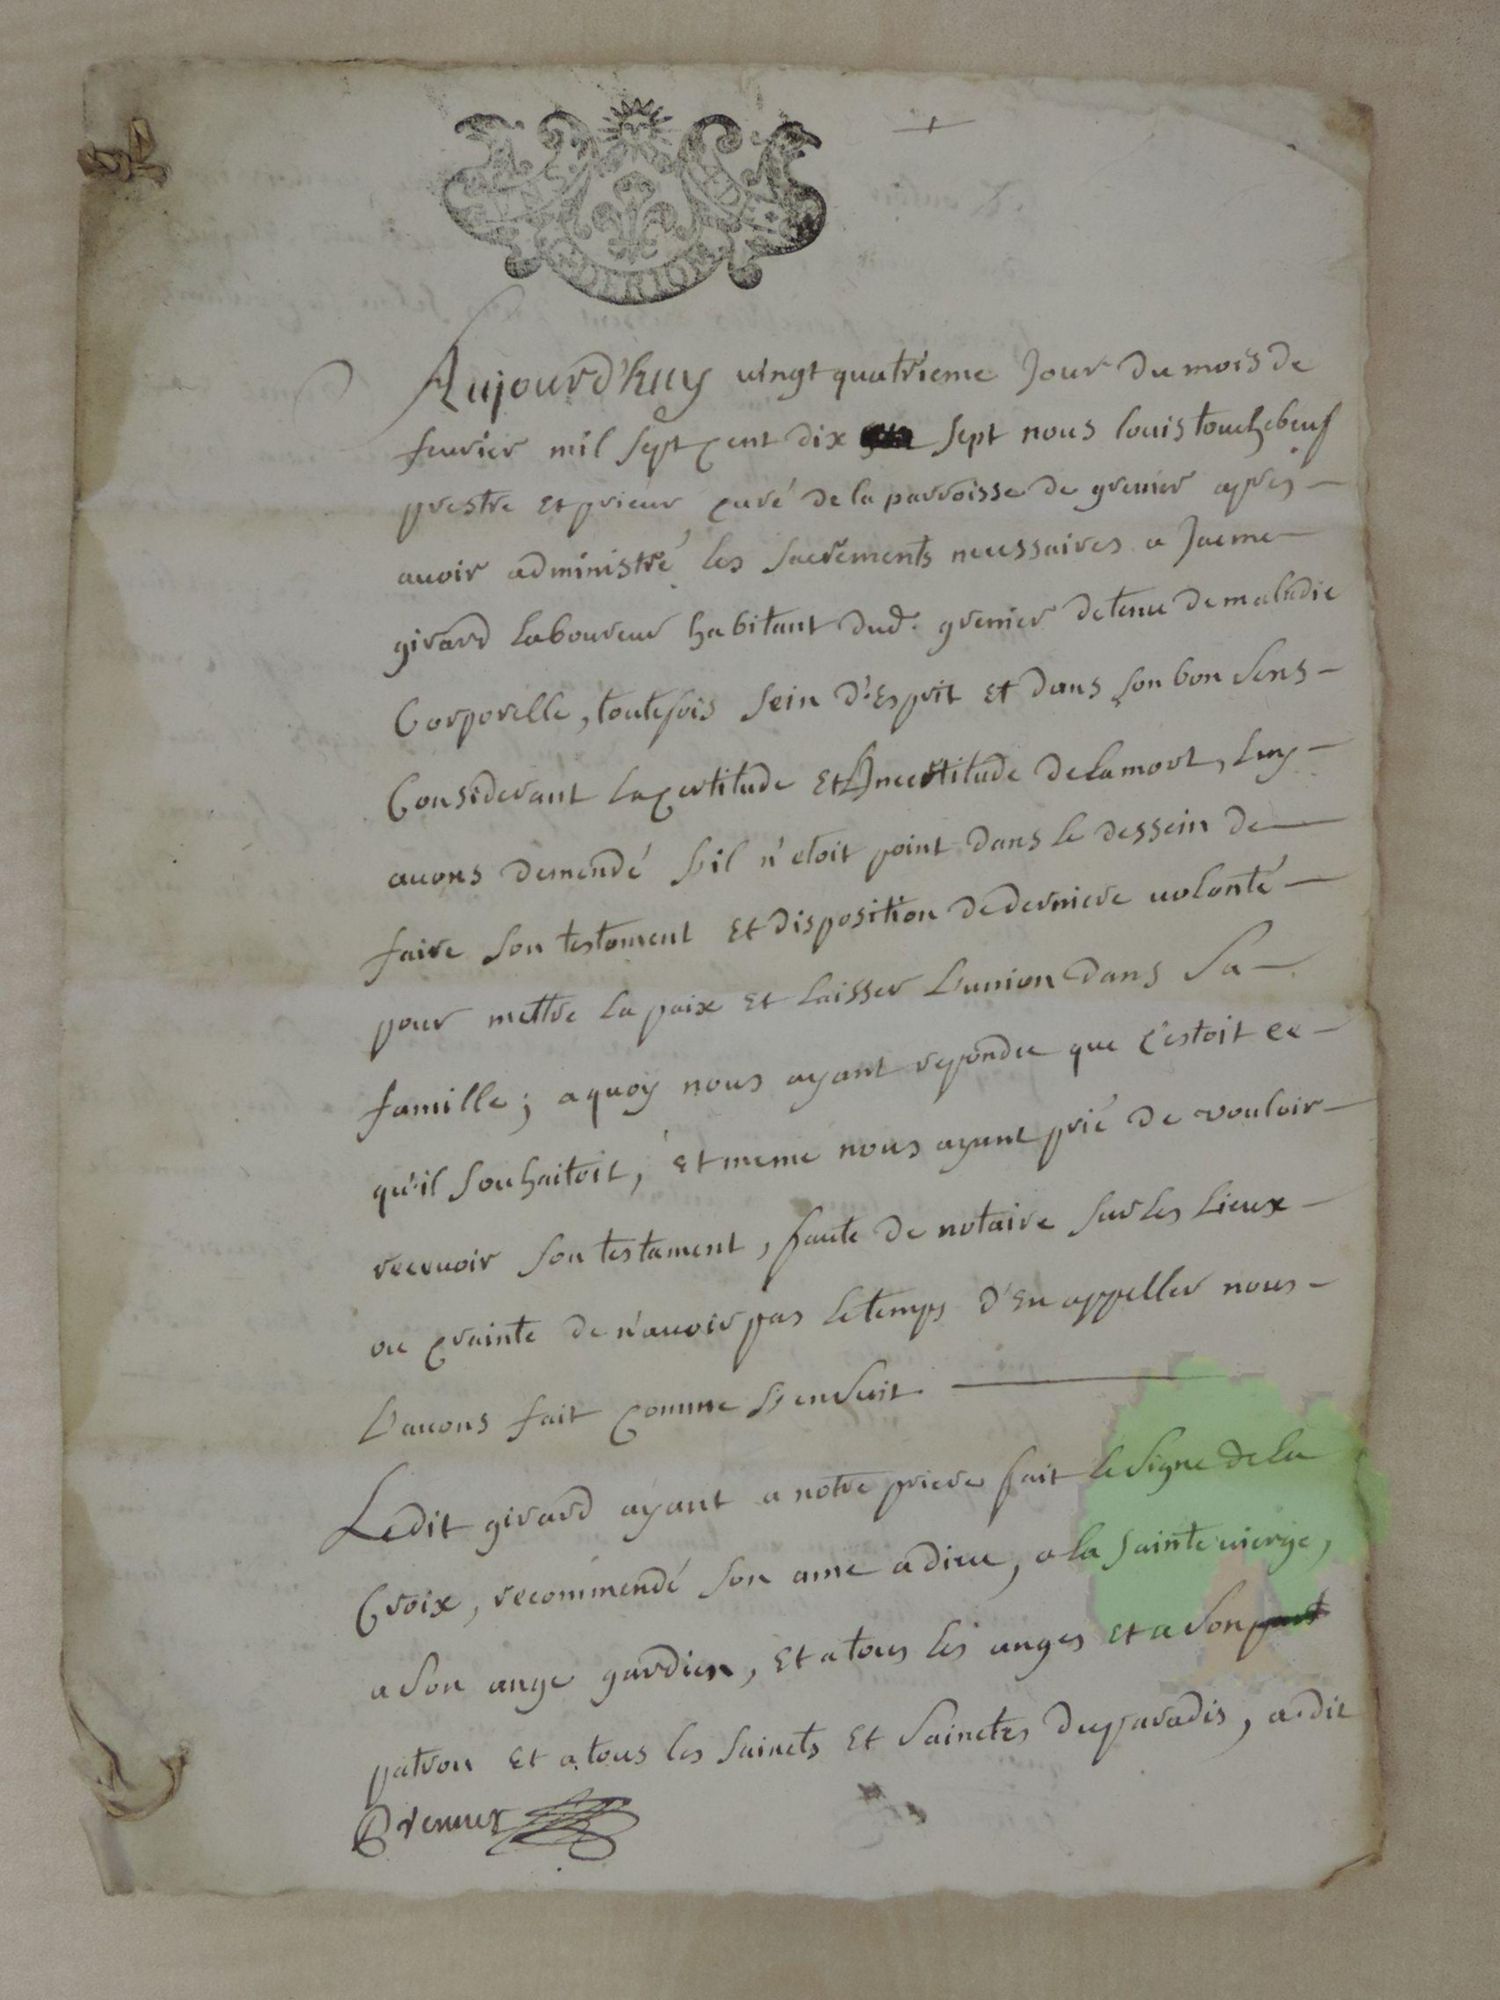 Aujourd'huy vingt quatrieme Jour du mois de
feurier mil sept cent dix sept nous louis touchebeuf
prestre et prieur curé de la parroisse de grenier apres
auoir administré les sacrements necessaires a Jacme
girard laboureur habitant dud. grenier detenu de maladie
Corporelle, toutefois sein d'esprit et dans son bon sens
Considerant la certitude et Lincertitude de la mort, luy
auons demendé s'il n'etoit point dans le dessein de
faire son testament et disposition de derniere uolonté
pour mettre la paix et laisser L'union dans sa
famille; a quoy nous ayant repondu que c'estoit ce
qu'il souhaitoit, et meme nous ayant prié de vouloir
receuoir son testament, faute de notaire sur les lieux
ou crainte de n'auoir pas le temps d'en appeller nous
L'auons fait comme s'ensuit.
Ledit girard ayant a notre priere fait le signe de la
Croix, recommendé son ame a dieu, a la sainte uierge,
a son ange gardien, et a tous les anges et a son
patron et a tous les saincts et sainctes du paradis, a dit